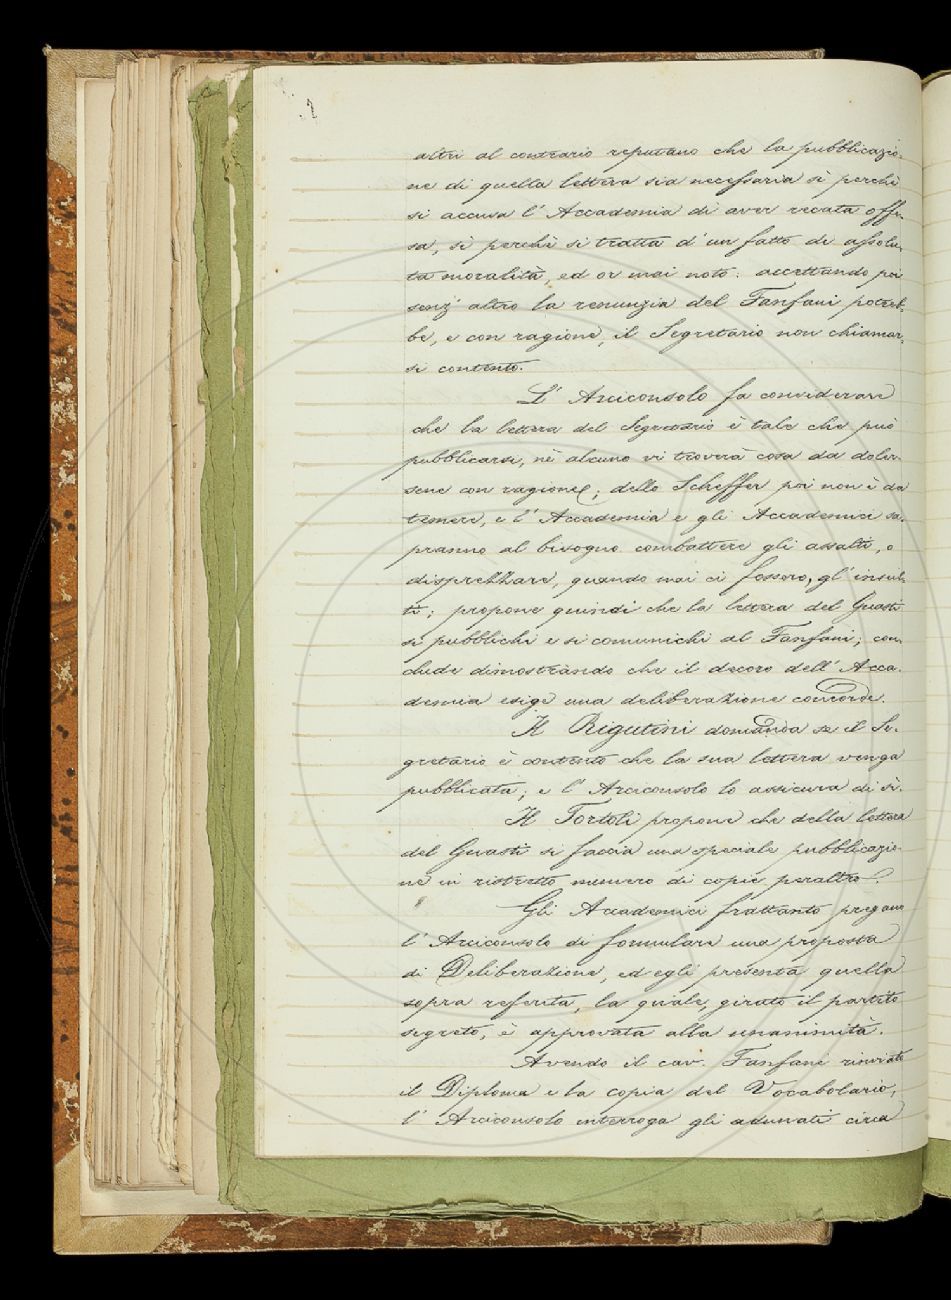 altri al contrario reputano che la pubblicazio-
ne di quella lettera sia necessaria sì perchè
si accusa l'Accademia di aver recata offe-
sa, sì perchè si tratta d'un fatto di assolu-
ta moralità, ed or mai noto: accettando poi
senz'altro la renunzia del Fanfani potreb-
be, e con ragione, il Segretario non chiamar-
si contento.
L'Arciconsolo fa considerare
che la lettera del Segretario è tale che può
pubblicarsi, nè alcuno vi troverà cosa da doler-
sene con ragione; dello Scheffer poi non è da
temere, e l'Accademia e gli Accademici sa-
pranno al bisogno combattere gli assalti, o
disprezzare, quando mai ci fossero, gl'insul-
ti; propone quindi che la lettera del Guasti
si pubblichi e si comunichi al Fanfani; con-
chude dimostrando che il decoro dell'Acca-
demia esige una deliberazione concorde.
Il Rigutini domanda se il Se-
gretario è contento che la sua lettera venga
pubblicata; e l'Arciconsolo lo assicura di sì.
Il Tortoli propone che della lettera
del Guasti si faccia una speciale pubblicazio-
ne in ristretto numero di copie peraltro.
Gli Accademici frattanto pregano
l'Arciconsolo di formulare una proposta
di Deliberazione, ed egli presenta quella
sopra referita, la quale, girato il partito
segreto, è approvata alla unanimità.
Avendo il cav. Fanfani rinviato
il Diploma e la copia del Vocabolario,
l'Arciconsolo interroga gli adunati circa